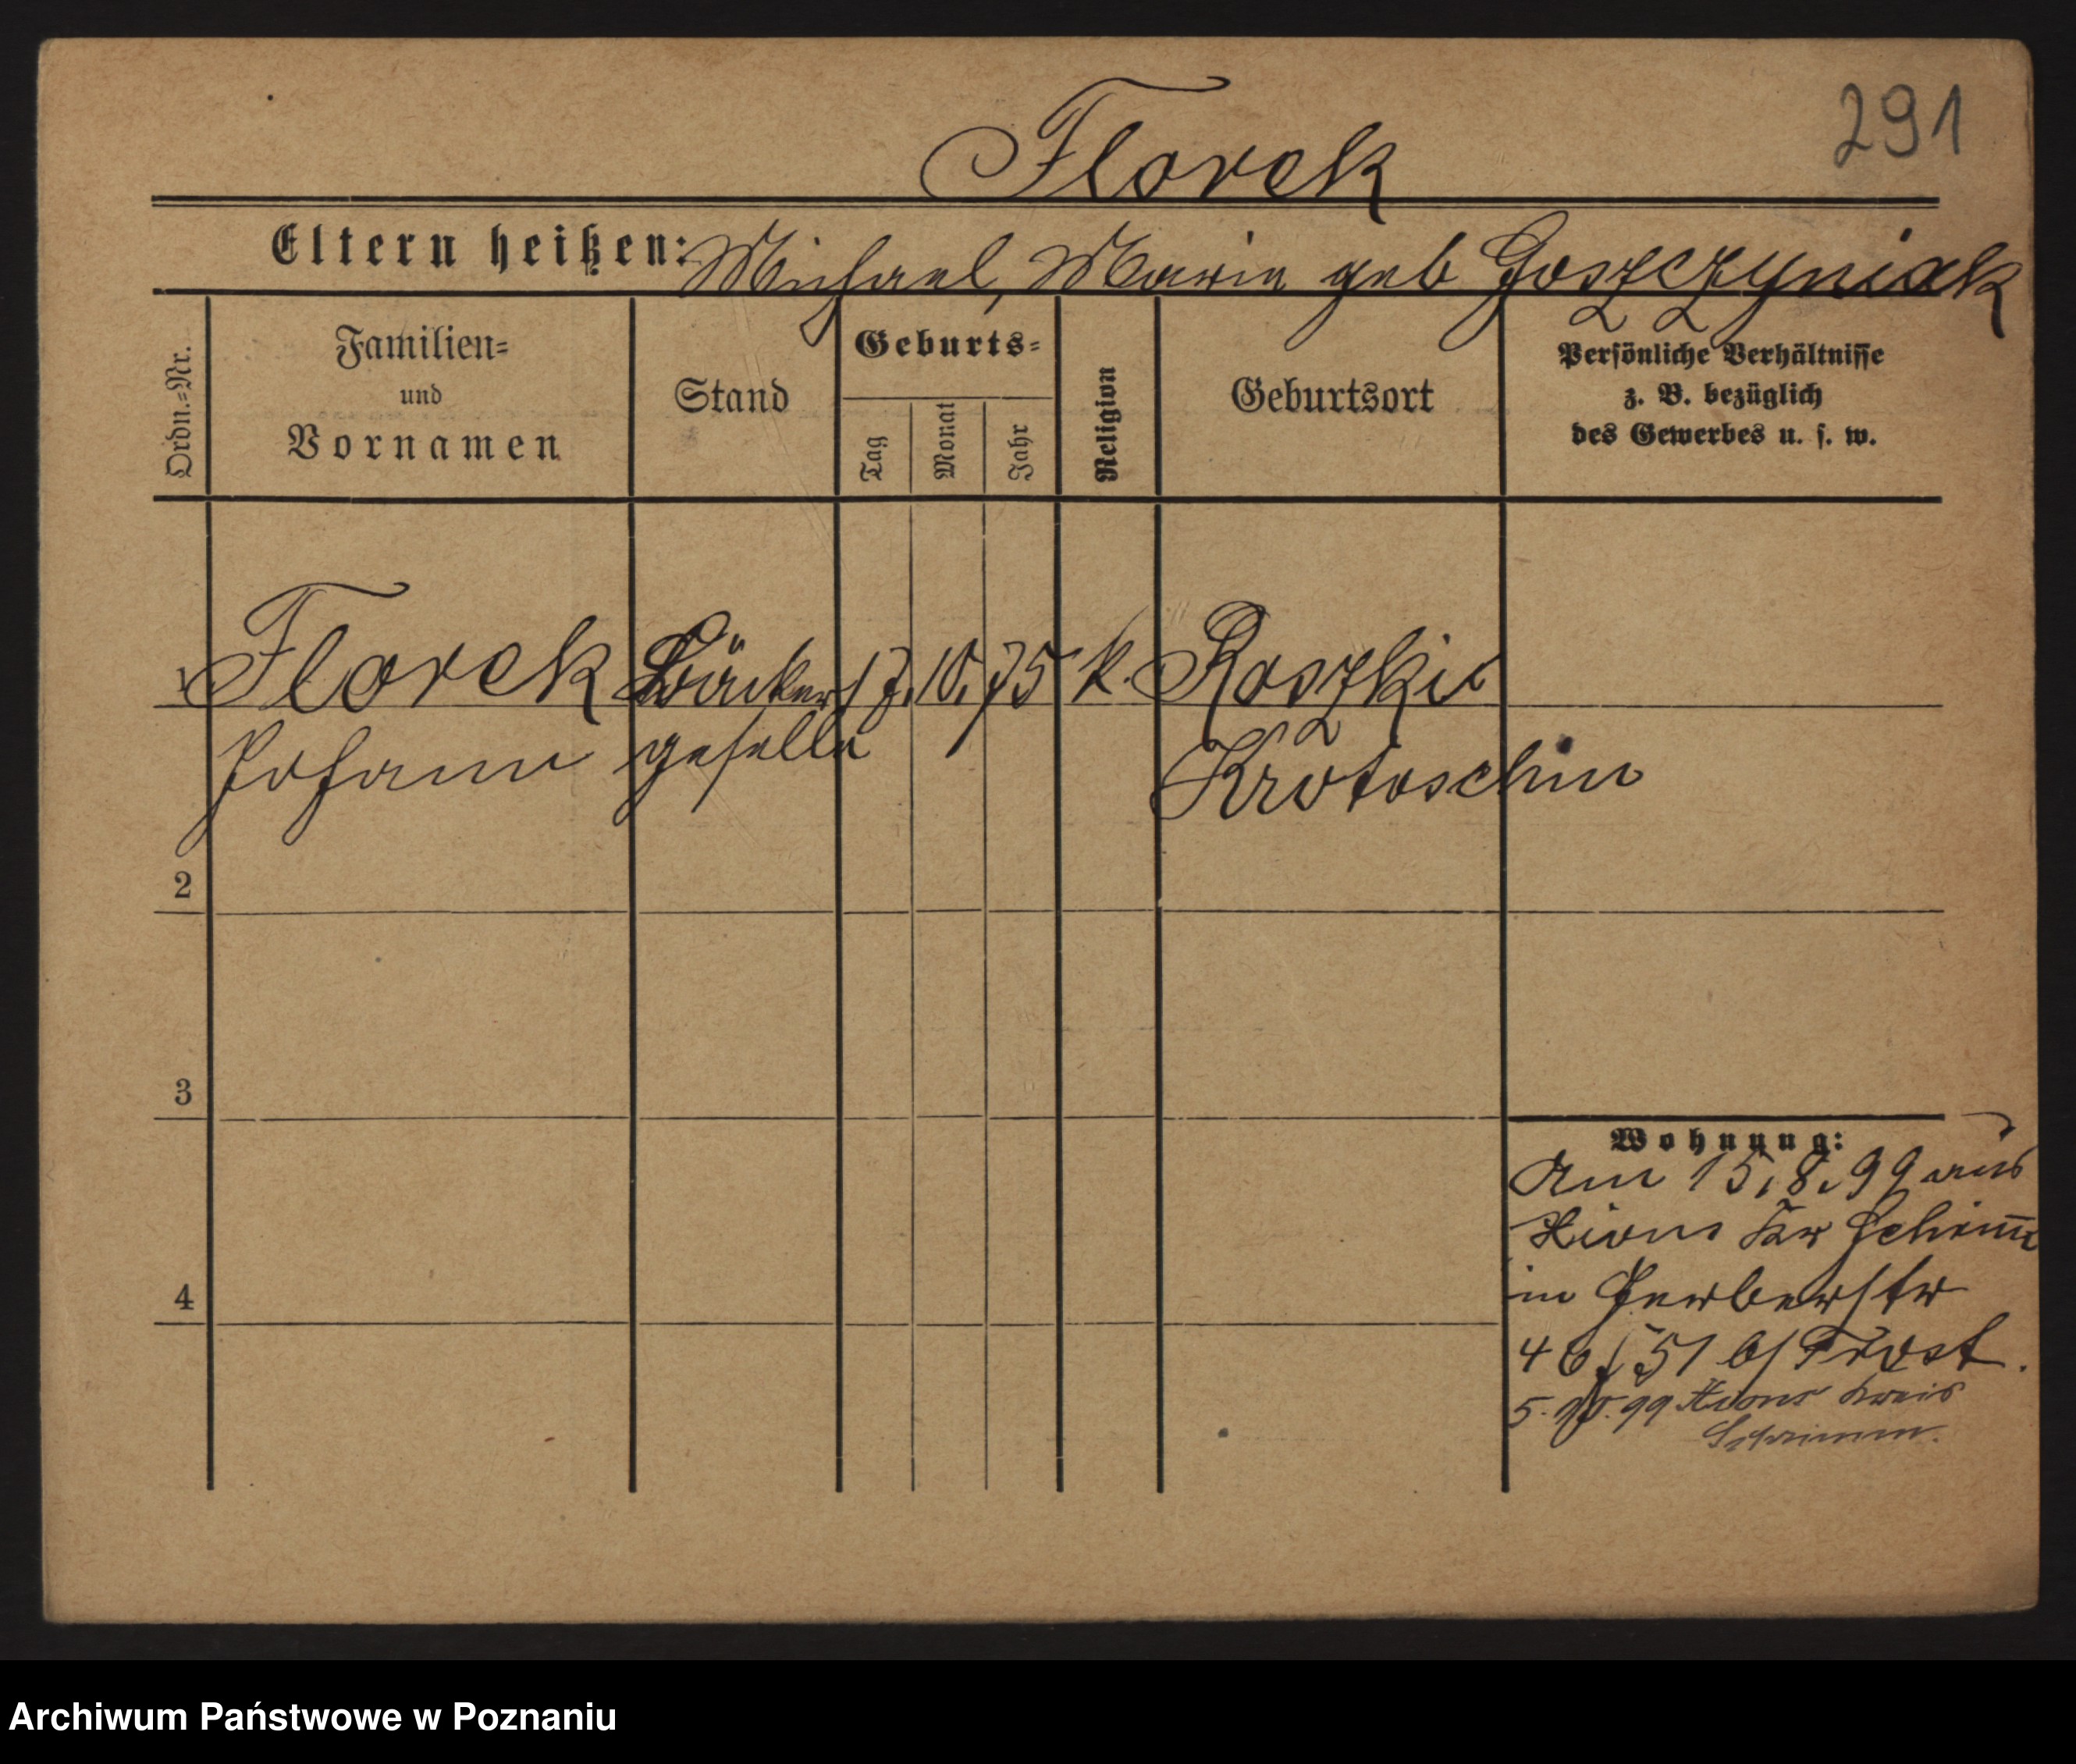 291
Florek
Eltern heißen: Michael, Maria geb Goszczyniak
Ordn.=Nr.
Familien=
und
Vornamen
Stand
Geburts=
Tag
Monat
Jahr
Religion
Geburtsort
Persönliche Verhältnisse
z. B. bezüglich
des Gewerbes u. s. w.
1 Florek Bäcker 17. 10. 75 k. Roszki
Johann geselle Krotoschin
2
3
4
Wohnung:
Am 15.8.99 aus
Xions Kr Schrim̅
in Gerberstr
51 b/ Trost.
5. 10. 99 Xions Kreis
Schrimm.
Archiwum Państwowe w Poznaniu